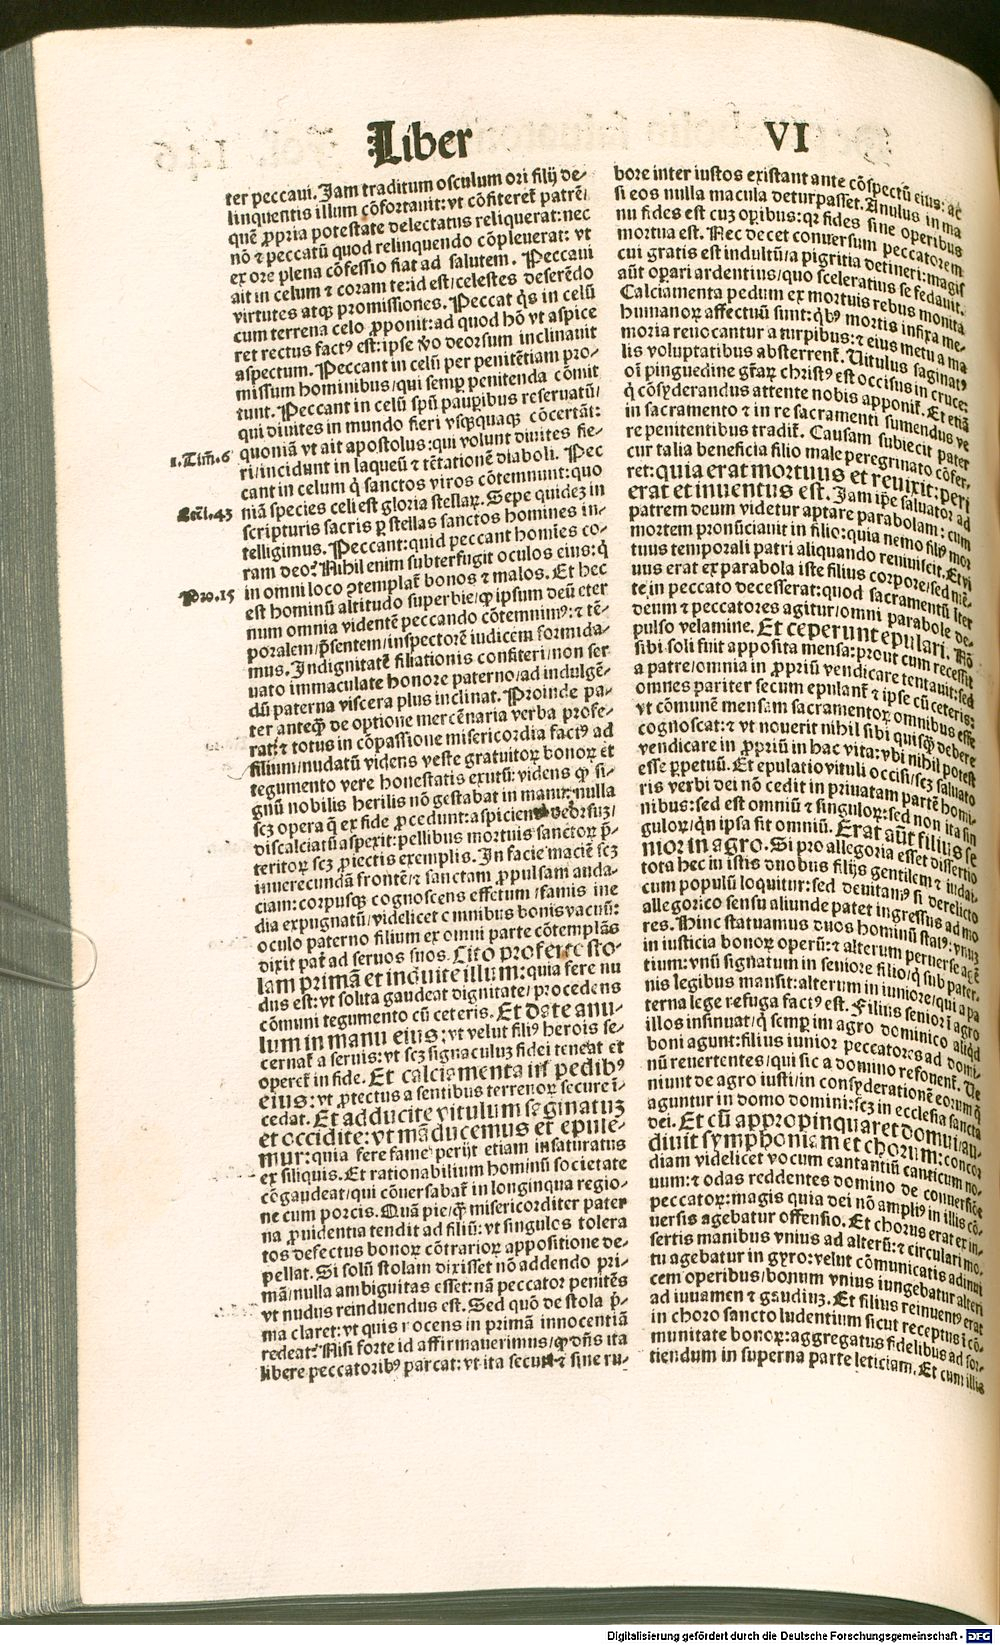 Liber
VI
ter peccaui. Jam traditum osculum ori filij de-
linquentis illum cõfortauit: vt cõfiteret᷑ patrẽ/
quẽ ꝓpria potestate delectatus reliquerat: nec
nõ ⁊ peccatũ quod relinquendo cõpleuerat: vt
ex ore plena cõfessio fiat ad salutem. Peccaui
ait in celum ⁊ coram te: id est/celestes deserẽdo
virtutes atqꝫ promissiones. Peccat q̇s in celũ
cum terrena celo ꝓponit: ad quod hõ vt aspice
ret rectus factꝰ est: ipse ṽo deorsum inclinauit
aspectum. Peccant in celũ per penitẽtiam pro-
missum hominibus/qui semꝑ penitenda cõmit
tunt. Peccant in celũ spũ pauꝑibus reseruatũ/
qui diuites in mundo fieri vsqꝫquaqꝫ cõcertãt:
1.Tim̃.6 quoniã vt ait apostolus: qui volunt diuites fie-
ri/incidunt in laqueũ ⁊ tẽtationẽ diaboli. Pec
cant in celum q̇ sanctos viros cõtemnunt: quo
Eccl̃.43 niã species celi est gloria stellaꝝ. Sepe quidez in
scripturis sacris ꝑ stellas sanctos homines in-
telligimus. Peccant: quid peccant homĩes co-
ram deo? Nihil enim subterfugit oculos eius: q̇
Pro.15 in omni loco ↄtemplat᷑ bonos ⁊ malos. Et hec
est hominũ altitudo superbie/ꝙ ipsum deũ eter
num omnia videntẽ peccando cõtemnimꝰ: ⁊ tẽ-
poralem/p̃sentem/inspectorẽ iudicem formida-
mus. Indignitatẽ filiationis confiteri/non ser
uato immaculate honore paterno/ad indulgẽ-
dũ paterna viscera plus inclinat. Proinde pa-
ter anteꝙ̃ de optione mercẽnaria verba profe-
rat: ⁊ totus in cõpassione misericordia factꝰ ad
filium/nudatũ videns veste gratuitoꝝ bonoꝝ et
tegumento vere honestatis exutũ: videns ꝙ si-
gnũ nobilis herilis nõ gestabat in manu: nulla
scꝫ opera q̃ ex fide ꝓcedunt: aspiciens deorsuz/
discalciatũ aspexit: pellibus mortuis sanctoꝝ p̃-
teritoꝝ scꝫ ꝓiectis exemplis. In facie maciẽ scꝫ
inuerecundã frontẽ/⁊ sanctam ꝓpulsam auda-
ciam: corpusqꝫ cognoscens effetum/famis ine
dia expugnatũ/videlicet omnibus bonis vacuũ:
oculo paterno filium ex omni parte cõtemplãs
dixit pat᷑ ad seruos suos. Cito proferte sto-
lam primã et induite illum: quia fere nu
dus est: vt solita gaudeat dignitate/procedens
cõmuni tegumento cũ ceteris. Et date anu-
lum in manu eius: vt velut filiꝰ herois se-
cernat᷑ a seruis: vt scꝫ signaculuz fidei teneat et
operet᷑ in fide. Et calciamenta in pedibꝰ
eius: vt ꝓtectus a sentibus terrenoꝝ secure ĩ-
cedat. Et adducite vitulum saginatuz
et occidite: vt mãducemus et epule-
mur: quia fere fame perijt etiam insaturatus
ex siliquis. Et rationabilium hominũ societate
cõgaudeat/qui cõuersabat᷑ in longinqua regio-
ne cum porcis. Quã pie/ꝙ̃ misericorditer pater
na ꝓuidentia tendit ad filiũ: vt singulos tolera
tos defectus bonoꝝ cõtrarioꝝ appositione de-
pellat. Si solũ stolam dixisset nõ addendo pri-
mã/nulla ambiguitas esset: nã peccator penitẽs
vt nudus reinduendus est. Sed quõ de stola p̃-
ma claret: vt quis nocens in primã innocentiã
redeat? Nisi forte id affirmauerimus/ꝙ dñs ita
libere peccatoribꝰ parcat: vt ita secure ⁊ sine ru-
bore inter iustos existant ante cõspectũ eius: ac
si eos nulla macula deturpasset. Anulus in ma
nu fides est cuz opibus: qr fides sine operibus
mortua est. Nec decet conuersum peccatorem
cui gratis est indultũ/a pigritia detineri: magis
aũt opari ardentius/quo sceleratius se fedauit.
Calciamenta pedum ex mortuis rebus monita
humanoꝝ affectuũ sunt: q̇bꝰ mortis infixa me-
moria reuocantur a turpibus: ⁊ eius metu a ma
lis voluptatibus absterrent᷑. Uitulus saginatꝰ
oĩ pinguedine gr̃aꝝ christꝰ est occisus in cruce:
q̇ cõsyderandus attente nobis apponit᷑. Et etiã
in sacramento ⁊ in re sacramenti sumendus ve
re penitentibus tradit᷑. Causam subiecit pater
cur talia beneficia filio male peregrinato cõfer-
ret: quia erat mortuus et reuixit: peri
erat et inuentus est. Jam ip̃e saluator ad
patrem deum videtur aptare parabolam: cum
mortem pronũciauit in filio: quia nemo filiꝰ mor
tuus temporali patri aliquando reuiuiscit. Et vi
uus erat ex parabola iste filius corpore/sed mẽ-
te in peccato decesserat: quod sacramentũ iter
deum ⁊ peccatores agitur/omni parabole de-
pulso velamine. Et ceperunt epulari. Nõ
sibi soli fuit apposita mensa: prout cum recessit
a patre/omnia in ꝓpriũ vendicare tentauit: sed
omnes pariter secum epulant᷑ ⁊ ipse cũ ceteris:
vt cõmunẽ mensam sacramentoꝝ omnibus esse
cognoscat: ⁊ vt nouerit nihil sibi quisqꝙ̃ debere
vendicare in ꝓpriũ in hac vita: vbi nihil potest
esse ꝑpetuũ. Et epulatio vituli occisi/scꝫ saluato
ris verbi dei nõ cedit in priuatam partẽ homi-
nibus: sed est omniũ ⁊ singuloꝝ: sed non ita sin
guloꝝ/qñ ipsa sit omniũ. Erat aũt filius se
nior in agro. Si pro allegoria esset dissertio
tota hec in istis duobus filijs gentilem ⁊ iudai-
cum populũ loquitur: sed deuitamꝰ si derelicto
allegorico sensu aliunde patet ingressus ad mo
res. Hinc statuamus duos hominũ statꝰ: vnuz
in iusticia bonoꝝ operũ: ⁊ alterum peruerse agẽ
tium: vnũ signatum in seniore filio/q̇ sub pater-
nis legibus mansit: alterum in iuniore/qui a pa
terna lege refuga factꝰ est. Filius senior ĩ agro
illos insinuat/q̇ semꝑ im agro dominico aliq̇d
boni agunt: filius iunior peccatores ad domi-
nũ reuertentes/qui sic a domino refouent᷑. Ue
niunt de agro iusti/in consyderationẽ eorum q̇
aguntur in domo domini: scꝫ in ecclesia sancta
dei. Et cũ appropinquaret domui/au-
diuit symphoniam et chorum: concor
diam videlicet vocum cantantiũ canticum no-
uum: ⁊ odas reddentes domino de conuersiõe
peccatoꝝ: magis quia dei nõ ampliꝰ in illis cõ-
uersis agebatur offensio. Et chorus erat ex in-
sertis manibus vnius ad alterũ: ⁊ circulari mo-
tu agebatur in gyro: velut cõmunicatis adinui
cem operibus/bonum vnius iungebatur alteri
ad iuuamen ⁊ gaudiuz. Et filius reinuentꝰ erat
in choro sancto ludentium sicut receptus ĩ cõ-
munitate bonoꝝ: aggregatus fidelibus ad sor-
tiendum in superna parte leticiam. Et cum illis
Digitalisierung gefördert durch die Deutsche Forschungsgemeinschaft - DFG